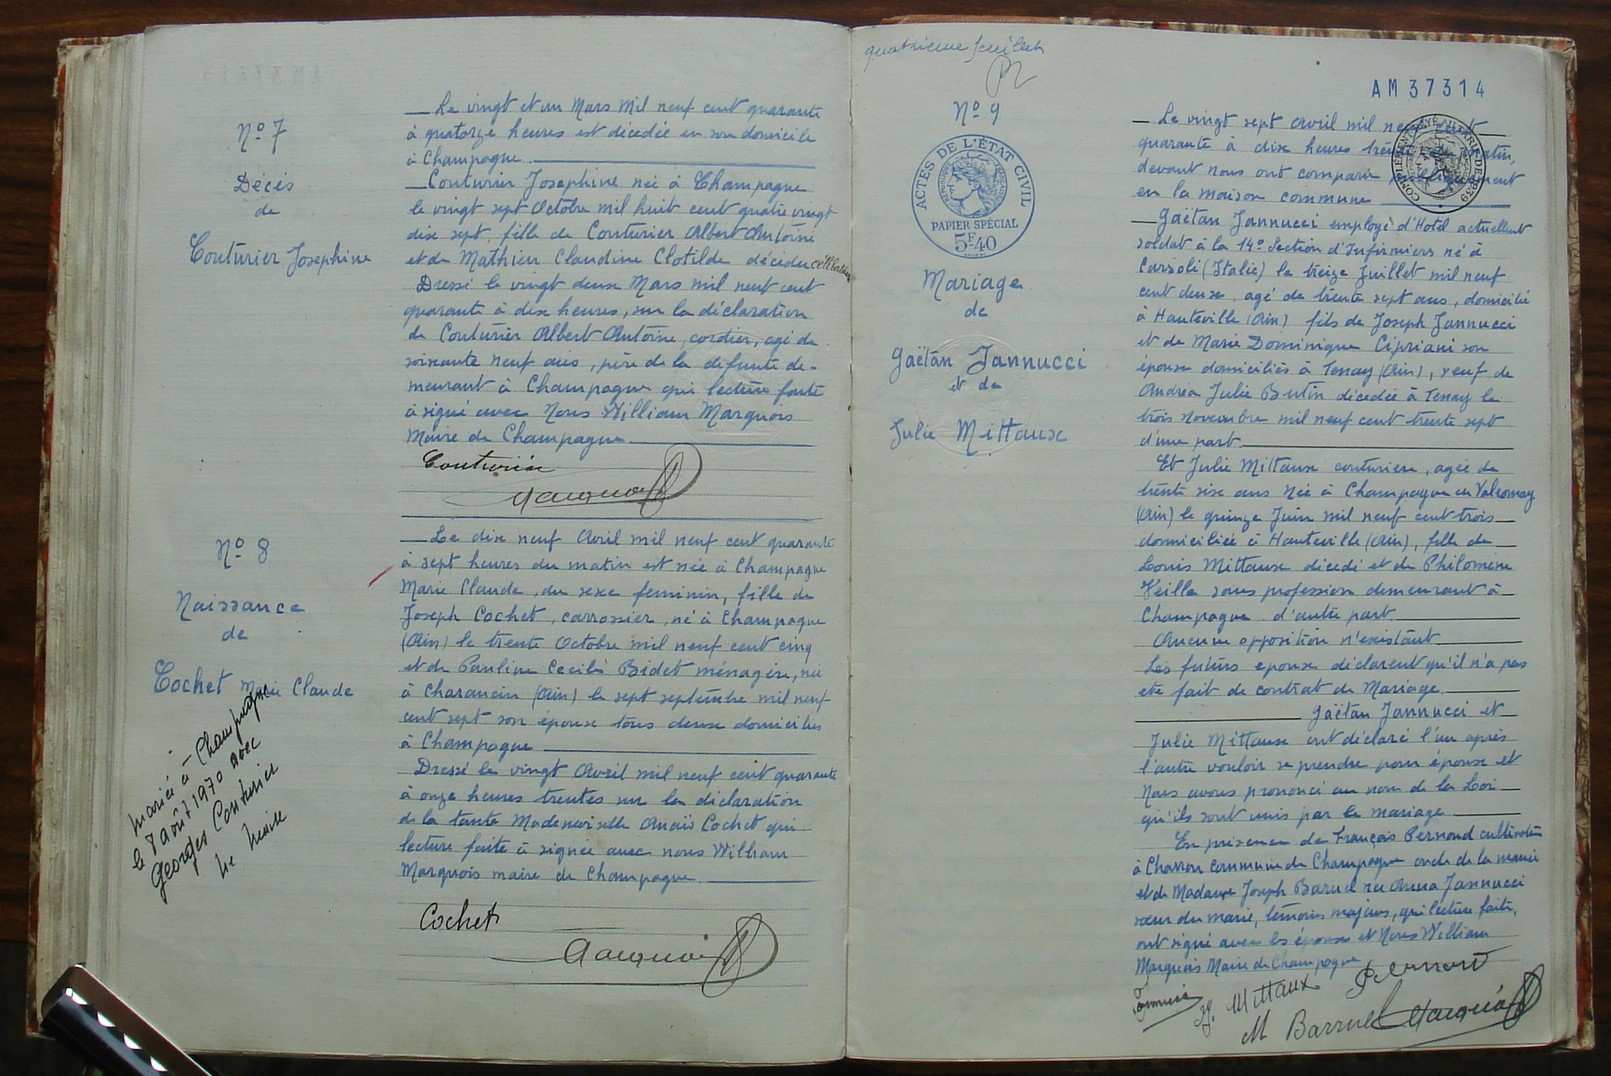 Nº 7
Décès
de
Couturier Josephine
Le vingt et un Mars mil neuf cent quarante
à quatorze heures est décédée en son domicile
à Champagne
Couturier Josephine née à Champagne
le vingt sept Octobre mil huit cent quatre vingt
dix sept, fille de Couturier Albert Antoine
et de Mathieu Claudine Clotilde décédée célibataire
Dressé le vingt deux Mars mil neuf cent
quarante à dix heures, sur la déclaration
de Couturier Albert Antoine, cordier, agé de
soixante neuf ans, père de la défunte de-
meurant à Champagne qui lecture faite
à signé avec Nous William Marquois
Maire de Champagne
Couturier
Marquois
Nº 8
Naissance
de
Cochet Marie Claude
mariée à Champagne
le 8 août 1970 avec
Georges Couturier
Le Maire
Le dix neuf Avril mil neuf cent quarante
à sept heures du matin est née à Champagne
Marie Claude, du sexe feminin, fille de
Joseph Cochet, carrossier, né à Champagne
(Ain) le trente Octobre mil neuf cent cinq
et de Pauline Cecile Bidet ménagère, née
à Charancin (Ain) le sept septembre mil neuf
cent sept son épouse tous deux domiciliés
à Champagne
Dressé le vingt Avril mil neuf cent quarante
à onze heures trentes sur la déclaration
de la tante Mademoiselle Anaïs Cochet qui
lecture faite à signée avec nous William
Marquois maire de Champagne.
Cochet
Marquois
quatrième feuillet
AM 37314
Nº 9
ACTES DE L'ÉTAT CIVIL
PAPIER SPÉCIAL
5F.40
Mariage
de
Gaëtan Jannucci
et de
Julie Mittaux
Le vingt sept avril mil neuf cent
quarante à dix heures trente du matin,
devant nous ont comparu publiquement
en la maison commune
Gaëtan Jannucci employé d'Hotel actuellement
soldat à la 14e Section d'Infirmiers né à
Carsoli (Italie) le treize Juillet mil neuf
cent deux, agé de trente sept ans, domicilié
à Hauteville (Ain) fils de Joseph Jannucci
et de Marie Dominique Cipriani son
épouse domiciliés à Tenay (Ain), veuf de
Andréa Julie Butin décédée à Tenay le
trois novembre mil neuf cent trente sept
d'une part
Et Julie Mittaux couturière, agée de
trente six ans née à Champagne en Valromey
(Ain) le quinze Juin mil neuf cent trois
domiciliée à Hauteville (Ain), fille de
Louis Mittaux décédé et de Philomène
Heille sans profession demeurant à
Champagne d'autre part.
Aucune opposition n'existant
Les futurs epoux déclarent qu'il n'a pas
été fait de contrat de Mariage.
Gaëtan Jannucci et
Julie Mittaux ont déclaré l'un après
l'autre vouloir se prendre pour époux et
Nous avons prononcé au nom de la Loi
qu'ils sont unis par le mariage
En présence de François Bernond cultivateur
à Charron Commune de Champagne oncle de la mariée
et de Madame Joseph Baruel née Anna Jannucci
sœur du marié, témoins majeurs, qui lecture faite,
ont signé avec les époux et Nous William
Marquois Maire de Champagne
J. Mittaux
M Barruel
Marquois